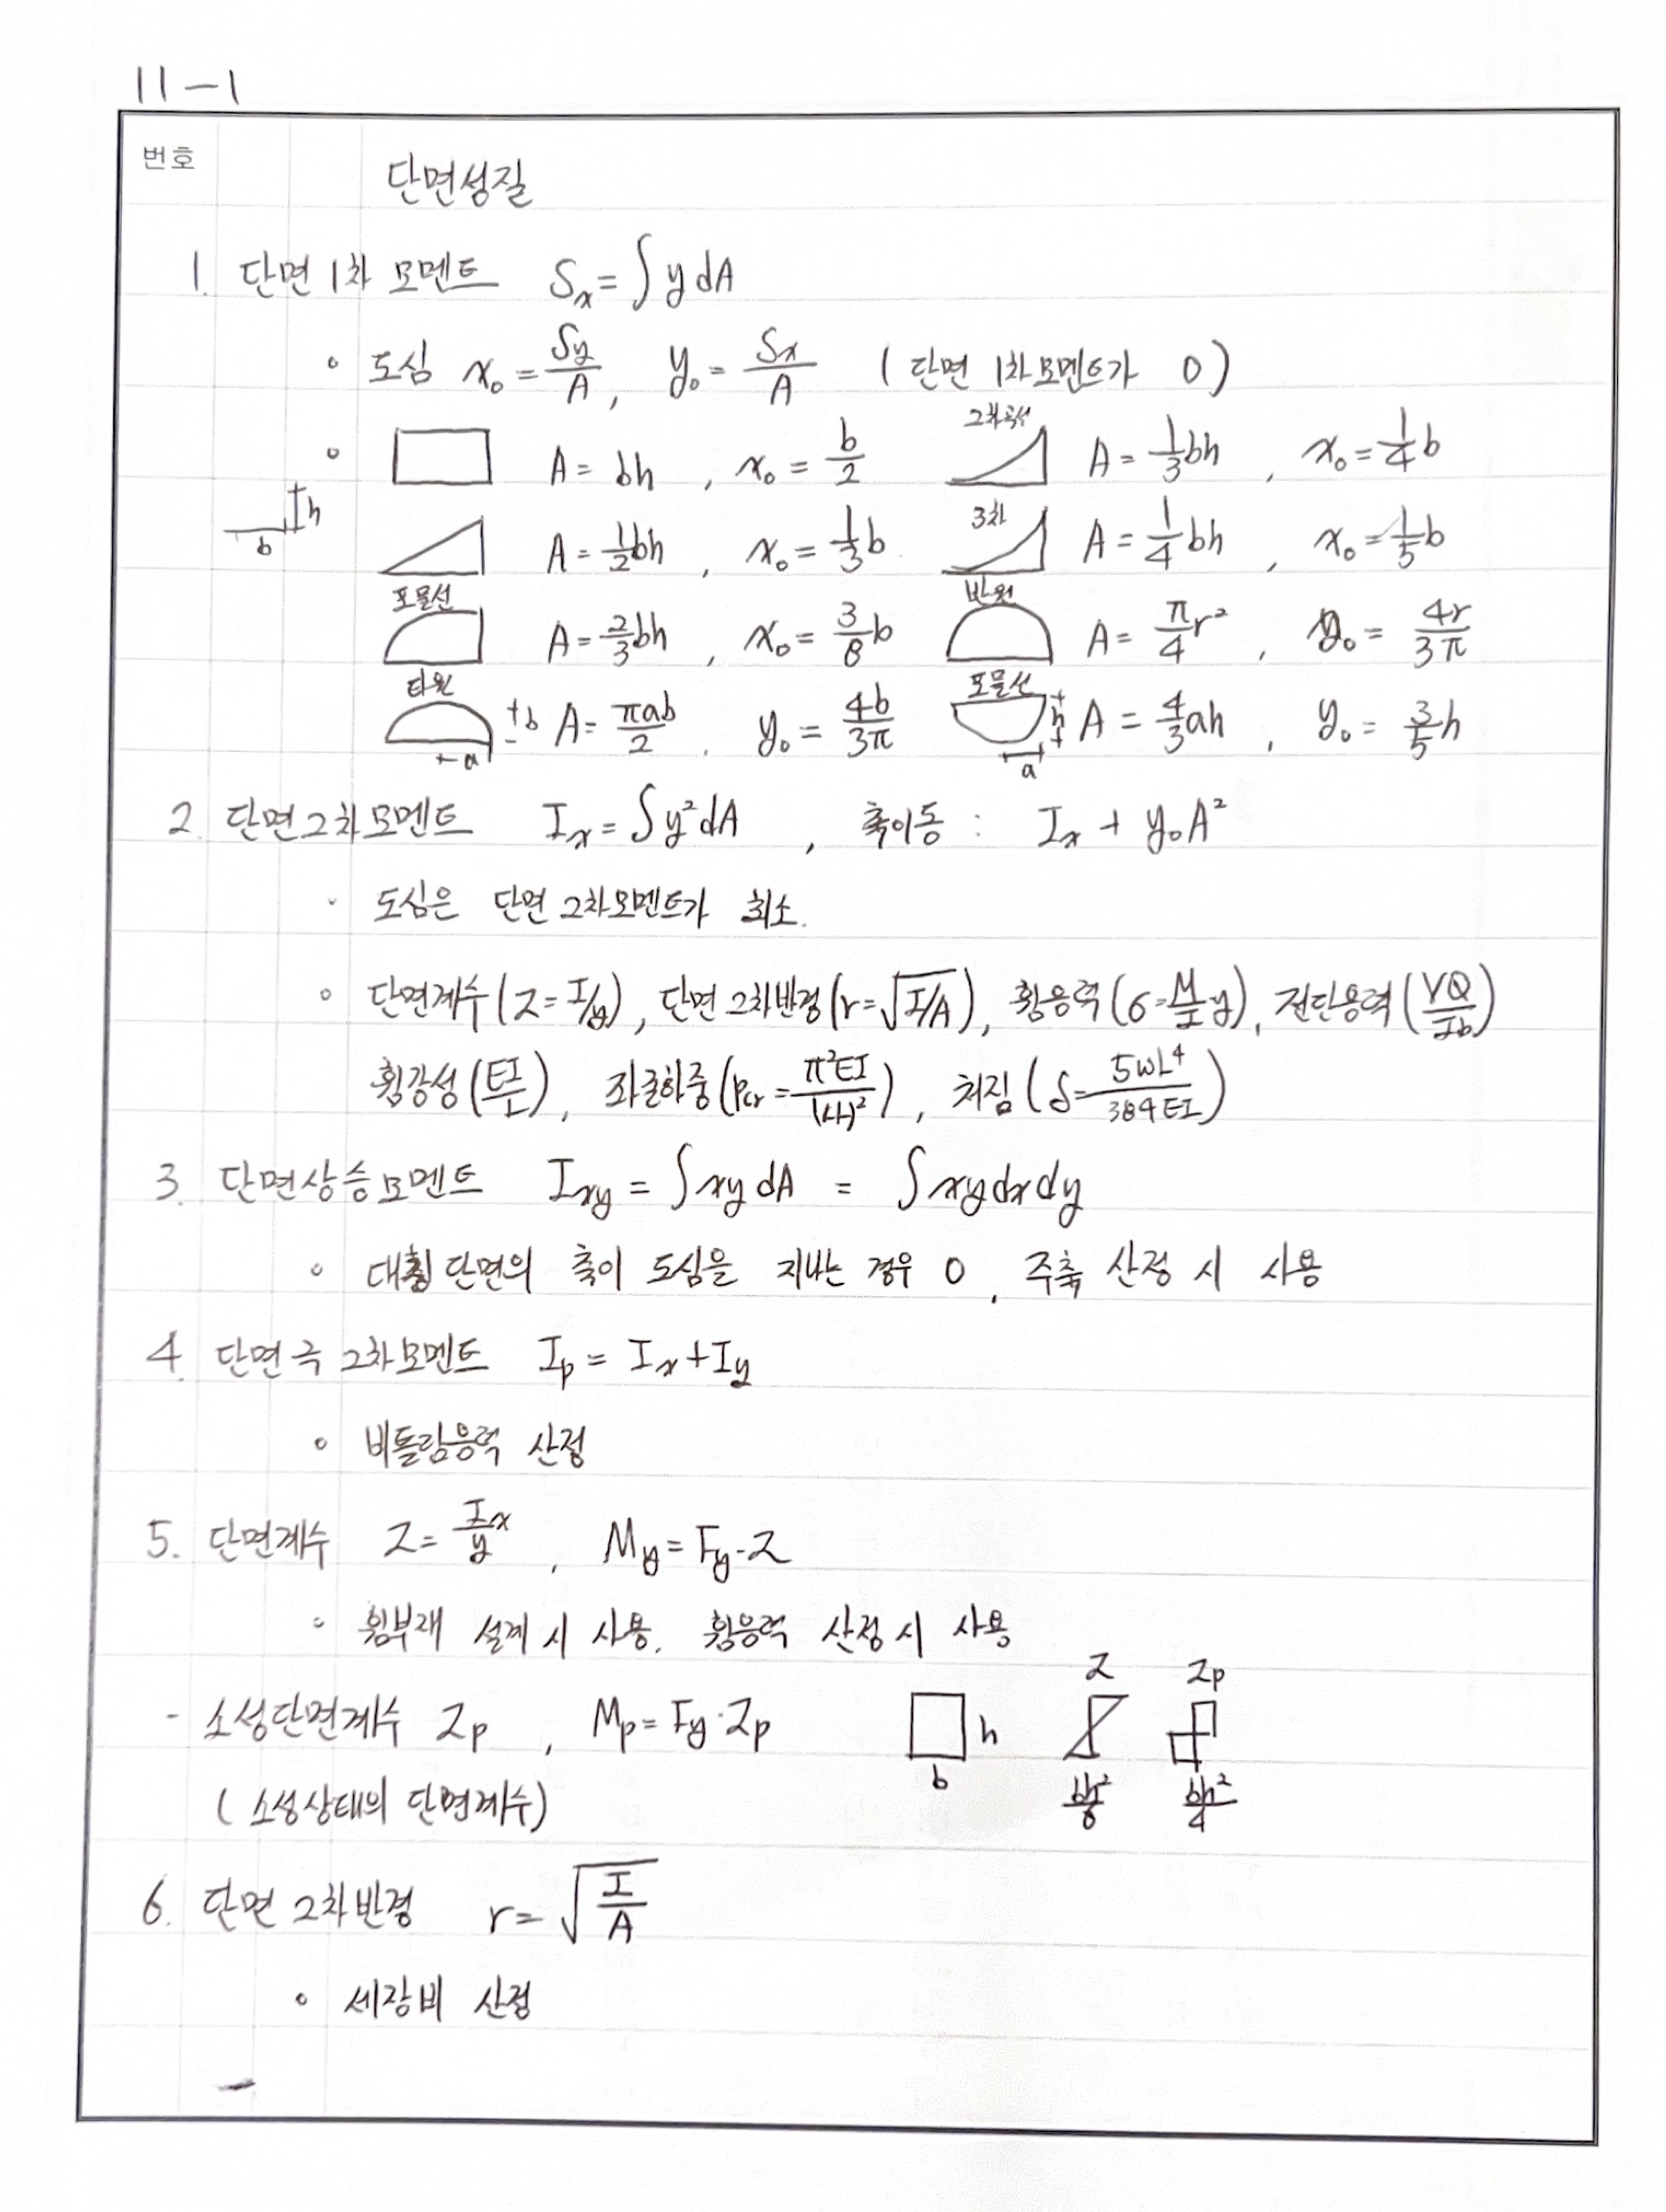 11-1
번호
단면성질
1. 단면 1차 모멘트 Sx = ∫ y dA
◦ 도심 x₀ = Sy/A , y₀ = Sx/A ( 단면 1차모멘트가 0 )
◦ A = bh , x₀ = b/2 2차곡선 A = 1/3 bh , x₀ = 1/4 b
h
b
A = 1/2 bh , x₀ = 1/3 b 3차 A = 1/4 bh , x₀ = 1/5 b
포물선 A = 2/3 bh , x₀ = 3/8 b 반원 A = π/4 r² , y₀ = 4r/3π
타원 b a A = πab/2 , y₀ = 4b/3π 포물선 h a A = 4/3 ah , y₀ = 3/5 h
2. 단면2차모멘트 Ix = ∫ y² dA , 축이동 : Ix + y₀A²
· 도심은 단면 2차모멘트가 최소.
◦ 단면계수 (Z = I/y), 단면 2차반경 (r = √I/A), 휨응력 (σ = M/I y), 전단응력 (VQ/Ib)
휨강성 (EI/L), 좌굴하중 (Pcr = π²EI/(kL)²) , 처짐 (δ = 5wL⁴/384EI)
3. 단면상승모멘트 Ixy = ∫ xy dA = ∫ xy dx dy
◦ 대칭단면의 축이 도심을 지나는 경우 0 , 주축 산정 시 사용
4. 단면극 2차모멘트 Ip = Ix + Iy
◦ 비틀림응력 산정
5. 단면계수 Z = Ix/y , My = Fy·Z
◦ 휨부재 설계 시 사용. 휨응력 산정 시 사용
- 소성단면계수 Zp , Mp = Fy·Zp h b Z bh²/6 Zp bh²/4
( 소성상태의 단면계수)
6. 단면 2차반경 r = √I/A
◦ 세장비 산정